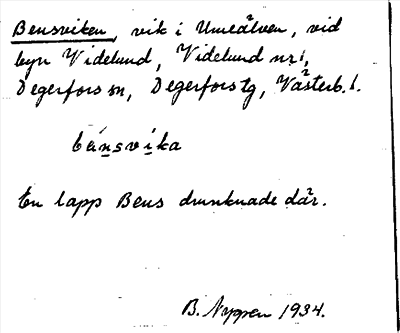 Bensviken, vik i Umeälven, vid
byn Videlund, Videlund nr 1,
Degerfors sn, Degerfors tg, Västerb. l.
bénsvika
En lapp Bens drunknade där.
B. Nygren 1934.